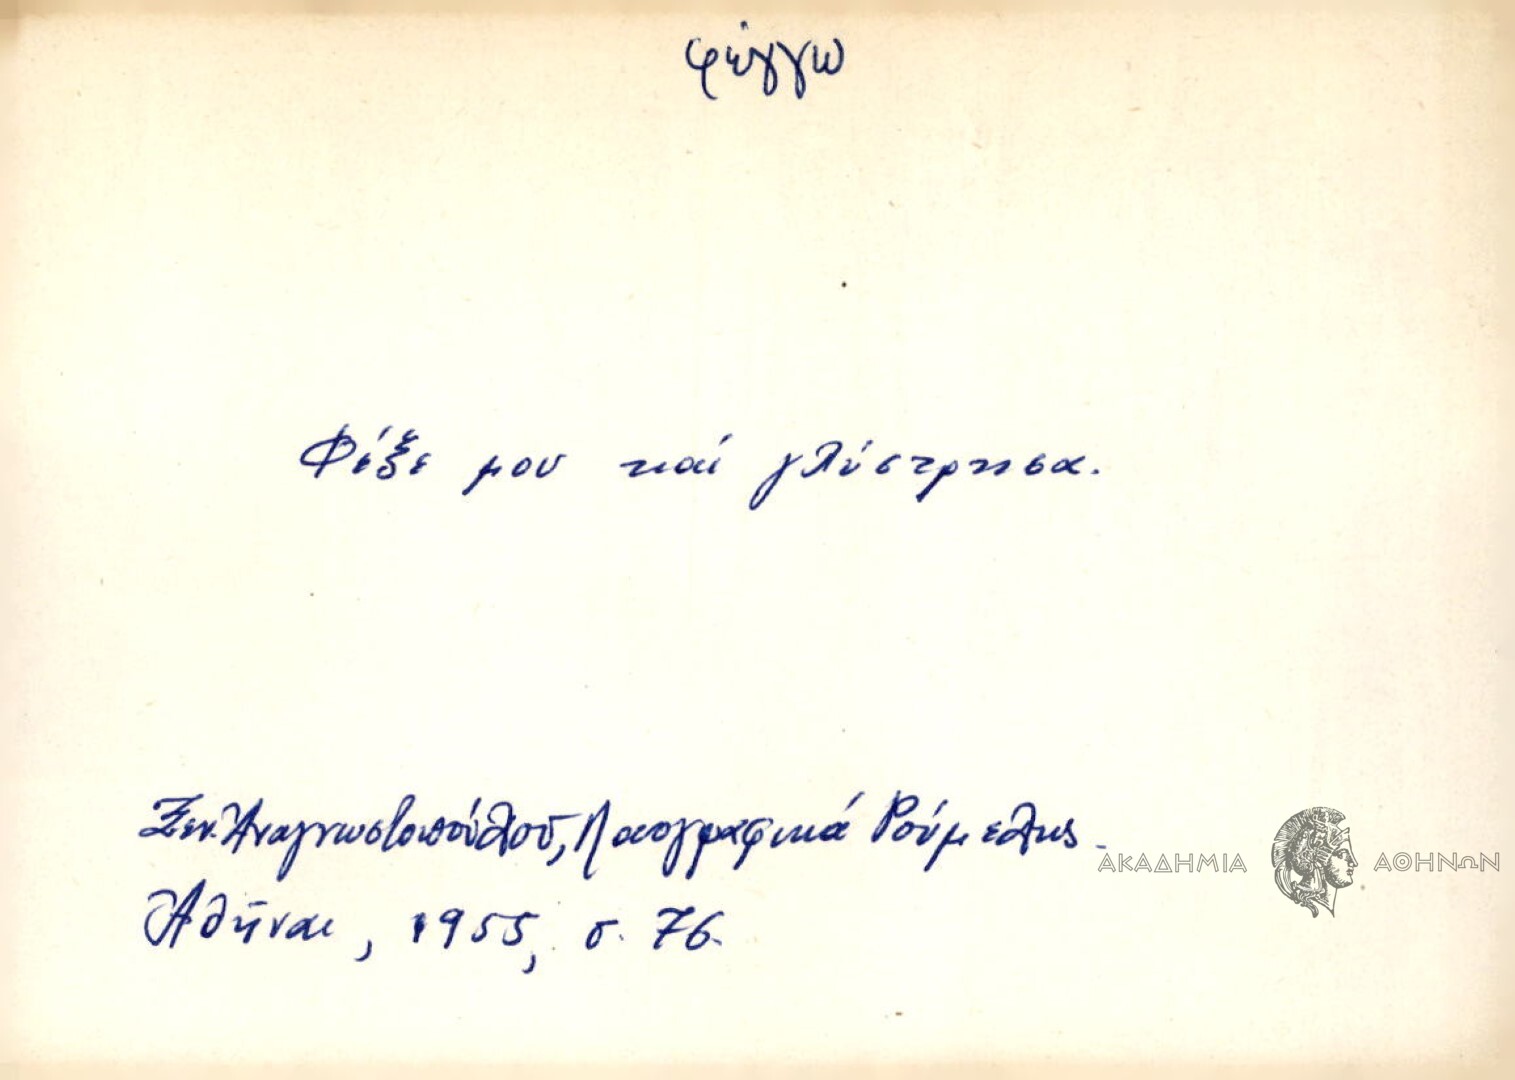 φέγγω
Φέξε μου καί γλύστρησα.
Ξεν. Ἀναγνωστοπούλου, Λαογραφικά Ρούμελης.
Ἀθῆναι, 1955, σ. 76.
ΑΚΑΔΗΜΙΑ ΑΘΗΝΩΝ